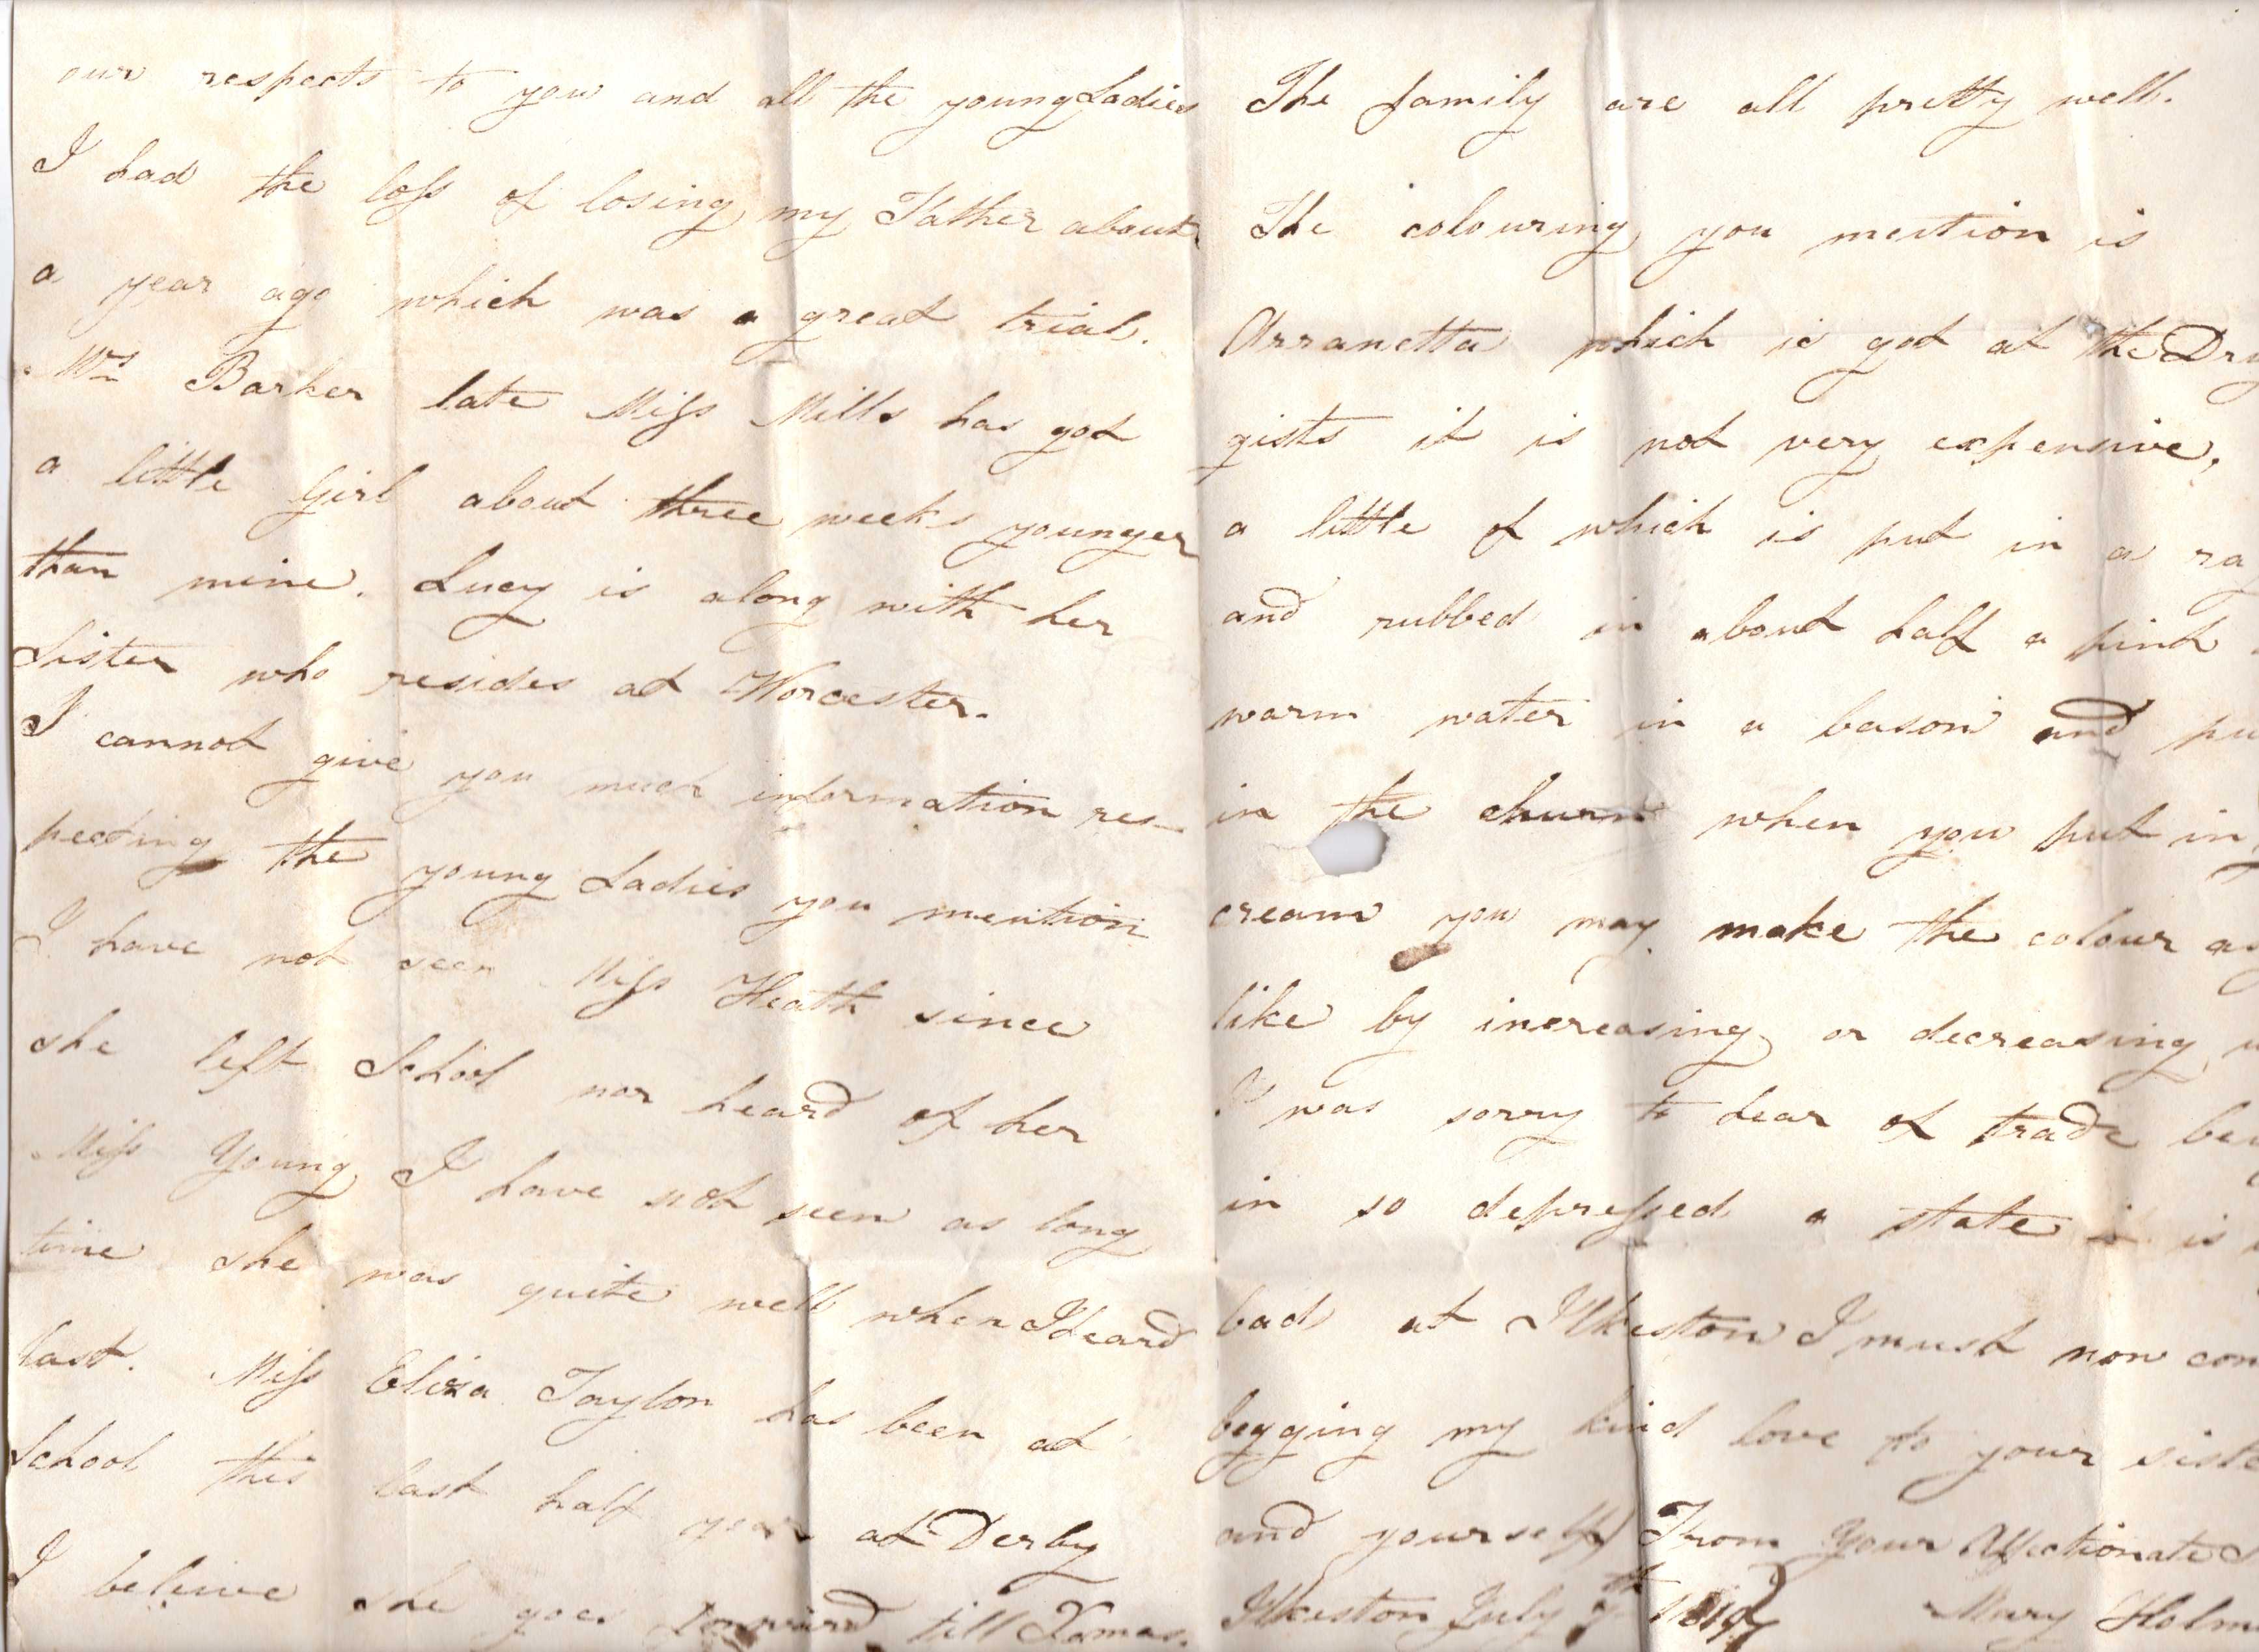 our respects to you and all the young Ladies
I had the loss of losing my Father about
a year ago which was a great trial.
Mrs Barker late Miss Mills has got
a little Girl about three weeks younger
than mine. Lucy is along with her
Sister who resides at Worcester.
I cannot give you much information res-
pecting the young Ladies you mention
I have not seen Miss Heath since
she left School nor heard of her
Miss Young I have not seen as long
time she was quite well when I heard
last. Miss Eliza Taylor has been at
School this last half year at Derby
I beleive she goes forward till Xmas.
The family are all pretty well.
The colouring you mention is
Arranetta which is got at the Dru
gists it is not very expensive,
a little of which is put in a rag
and rubbed in about half a pint
warm water in a bason and pu
in the churn when you put in
cream you may make the colour as
like by increasing or decreasing
I was sorry to hear of trade bei
in so depressed a state is
bad at Ilkeston I must now con
begging my kind love to your siste
and yourself From Your Affectionate
Ilkeston July Mary Holm